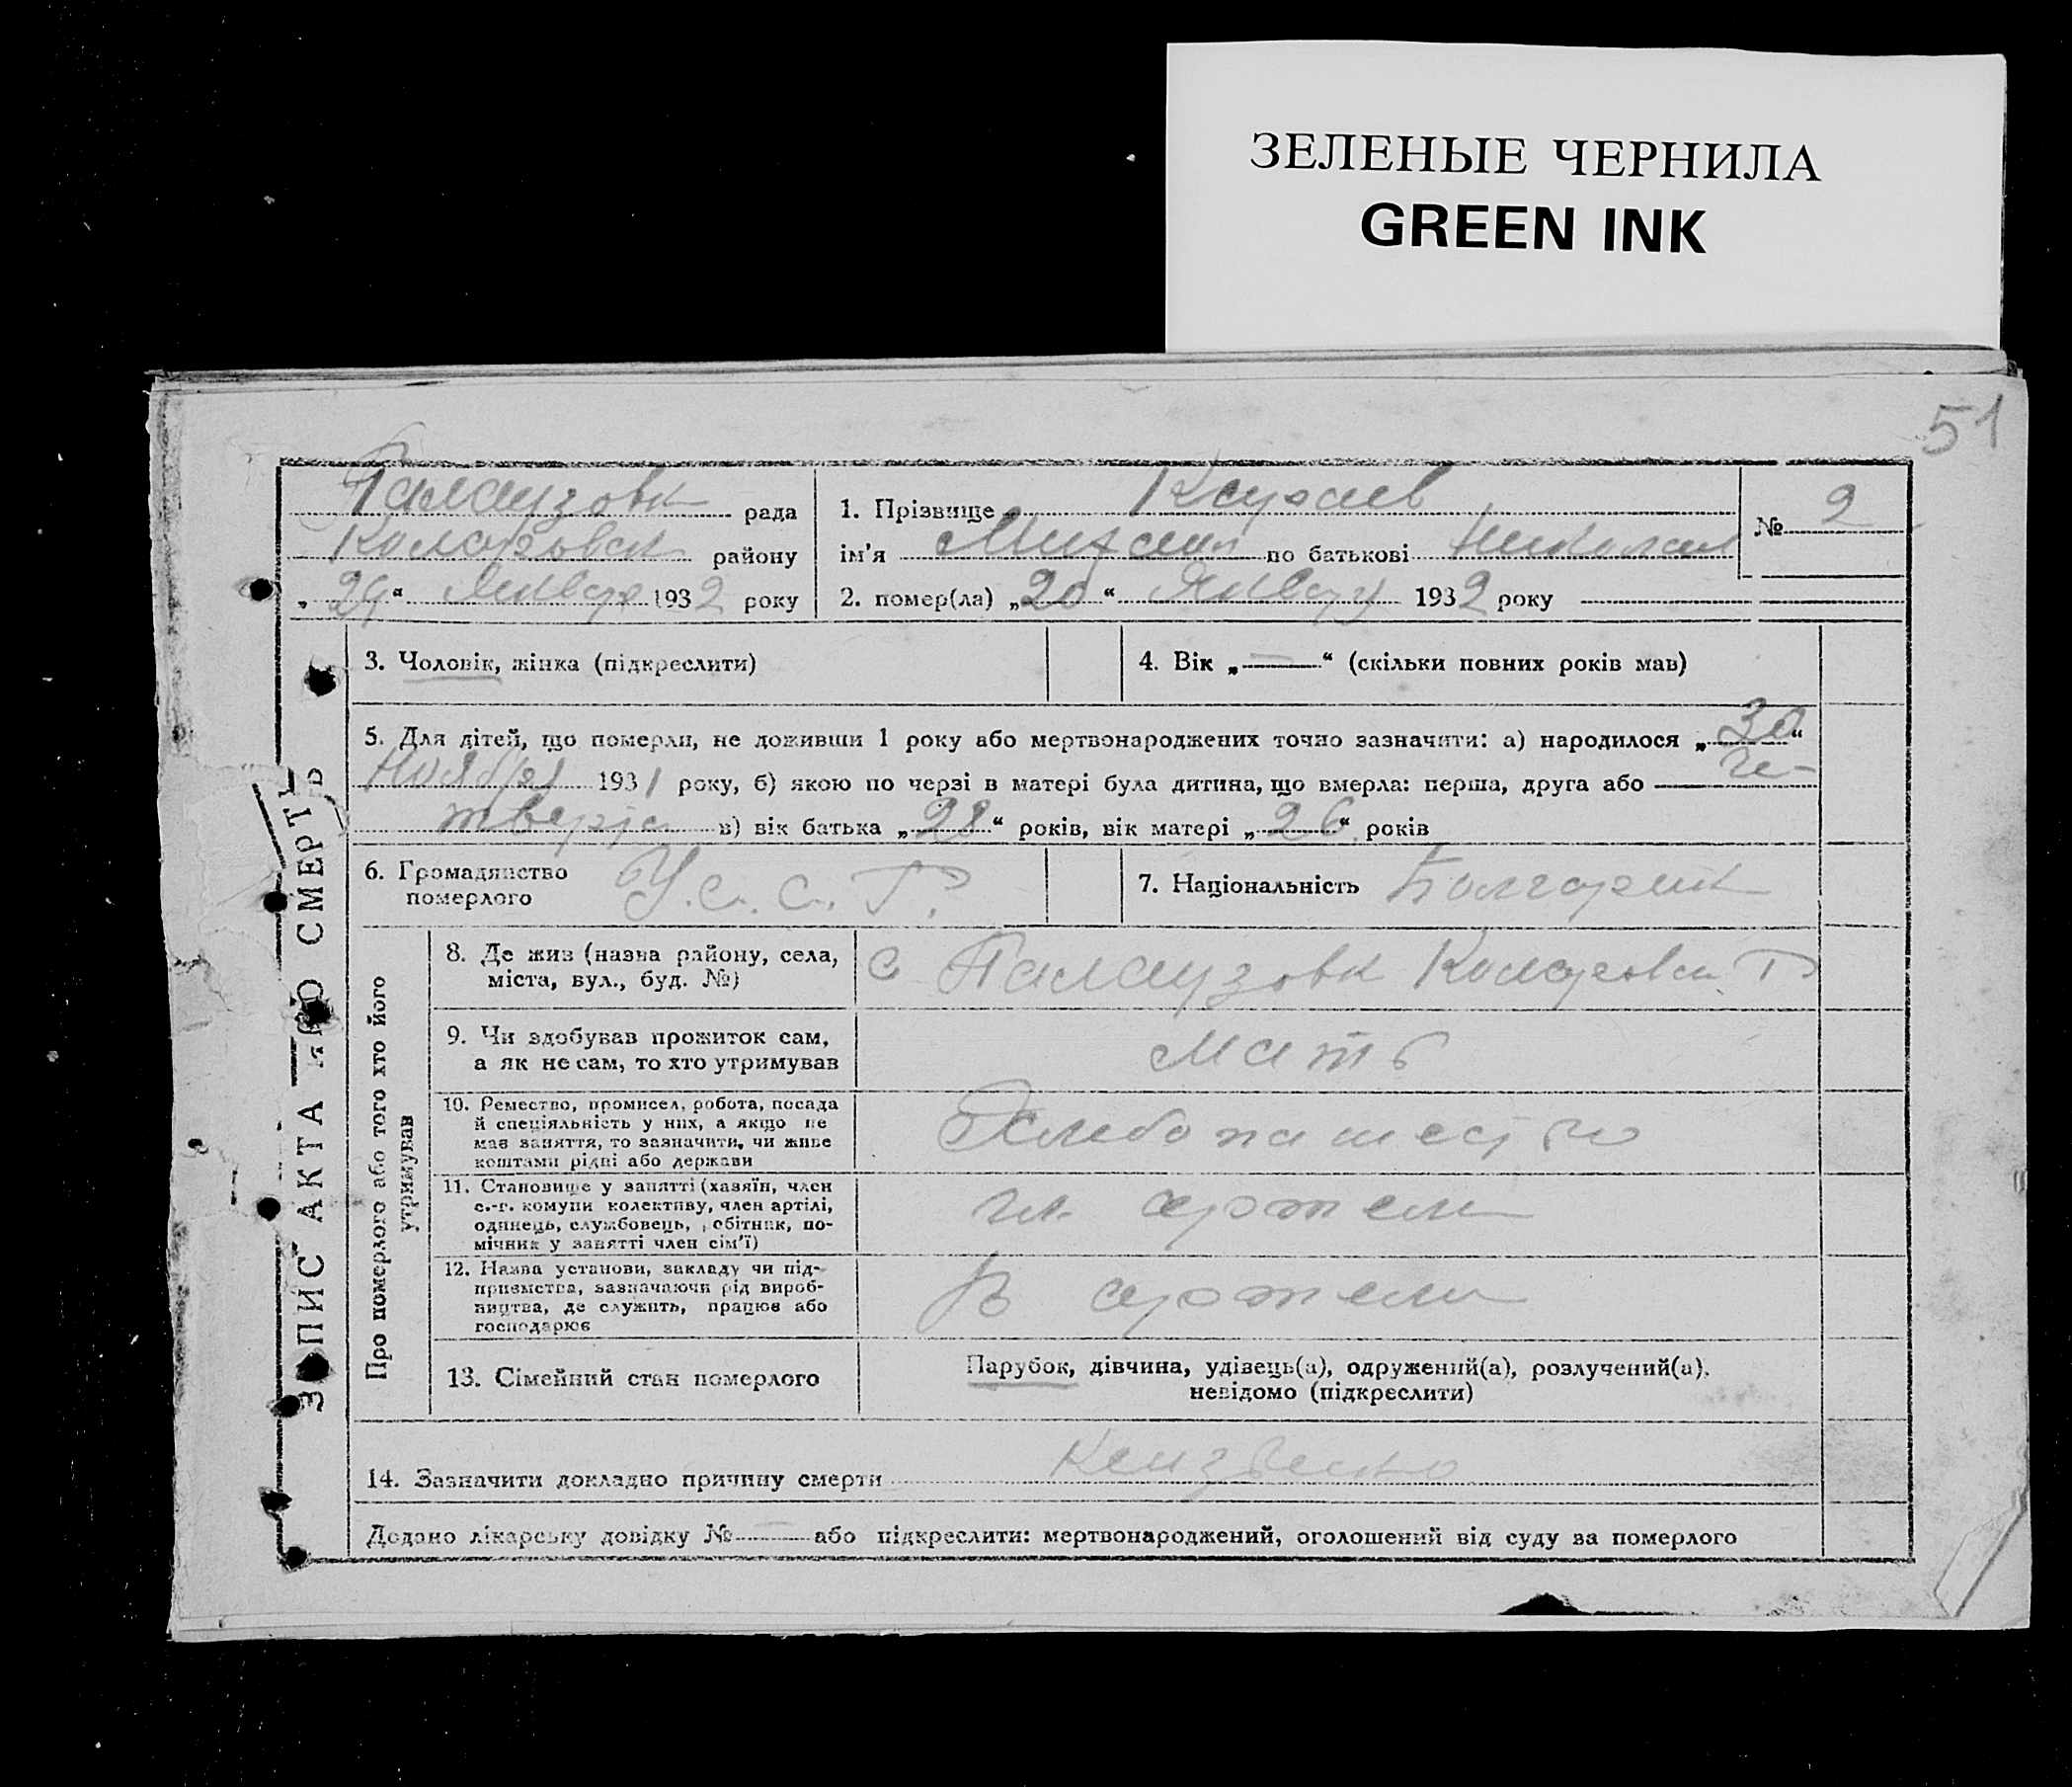 ЗЕЛЕНЫЕ ЧЕРНИЛА
GREEN INK
51
Палаузовк рада
Коларовск району
„29“ Января 1932 року
1. Прізвище
ім'я Михаил по батькові Николаев
2. помер(ла) „20“ Январу 1932 року
№ 2
ЗАПИС АКТА ПРО СМЕРТЬ
3. Чоловік, жінка (підкреслити)
4. Вік „—“ (скільки повних років мав)
5. Для дітей, що померли, не доживши 1 року або мертвонароджених точно зазначити: а) народилося „30“
Ноября 1931 року, б) якою по черзі в матері була дитина, що вмерла: перша, друга або че-
твертая в) вік батька „28“ років, вік матері „26“ років
6. Громадянство
померлого
У.С.С.Р.
7. Національність Болгарин
Про померлого або того хто його
утримував
8. Де жив (назва району, села,
міста, вул., буд. №)
с Палаузовк Коларовск. Р
9. Чи здобував прожиток сам,
а як не сам, то хто утримував
Мать
10. Ремество, промисел, робота, посада
й спеціяльність у них, а якщо не
мав заняття, то зазначити, чи живе
коштами рідні або держави
Хлебопашество
11. Становище у занятті (хазяїн, член
с.-г. комуни колективу, член артілі,
одинець, службовець, робітник, по-
мічник у занятті член сім'ї)
чл. артели
12. Назва установи, закладу чи під-
приємства, зазначаючи рід вироб-
ництва, де служить, працює або
господарює
В артели
13. Сімейний стан померлого
Парубок, дівчина, удівець(а), одружений(а), розлучений(а),
невідомо (підкреслити)
14. Зазначити докладно причину смерти Неизвестно
Додано лікарську довідку № — або підкреслити: мертвонароджений, оголошений від суду за померлого